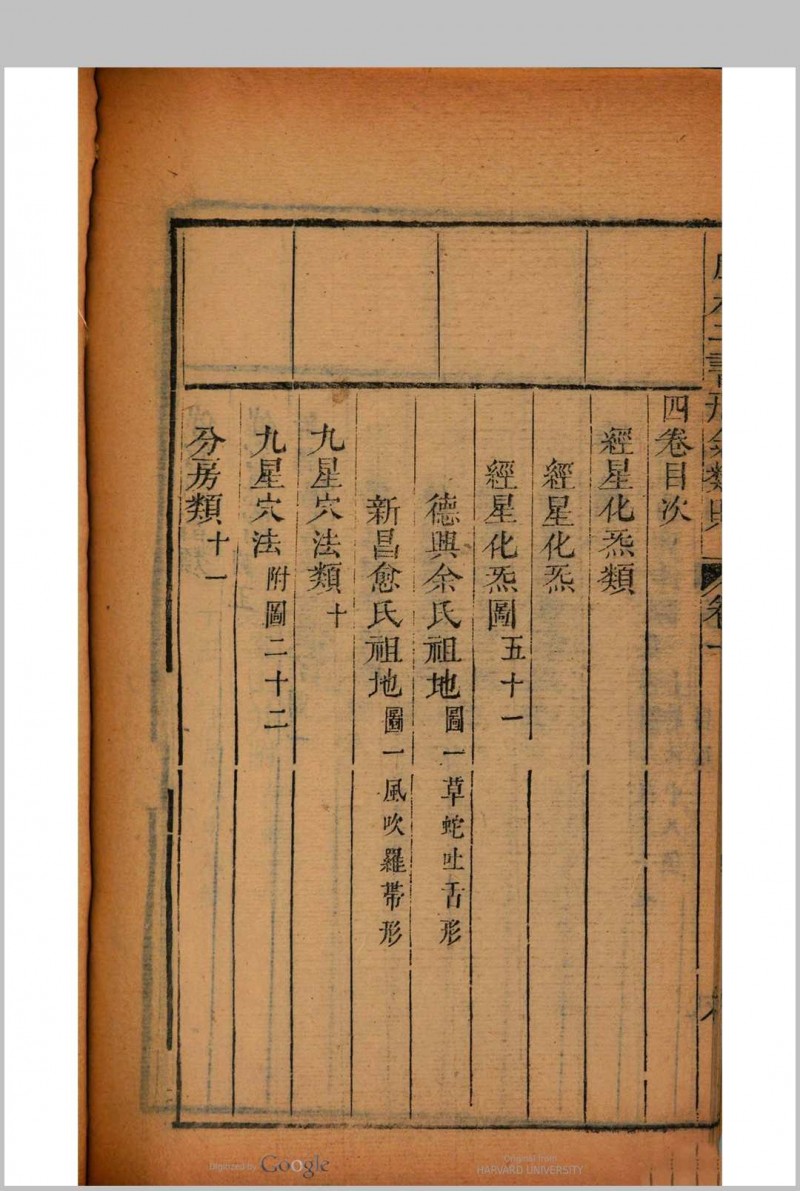 四卷目次
經星化炁類
經星化炁
經星化炁圖五十一
德興余氏祖地圖一草蛇吐舌形
新昌愈氏祖地圖一風吹羅帶形
九星穴法類十
九星穴法附圖二十二
分房類十一
Digitized by Google
Original from
HARVARD UNIVERSITY